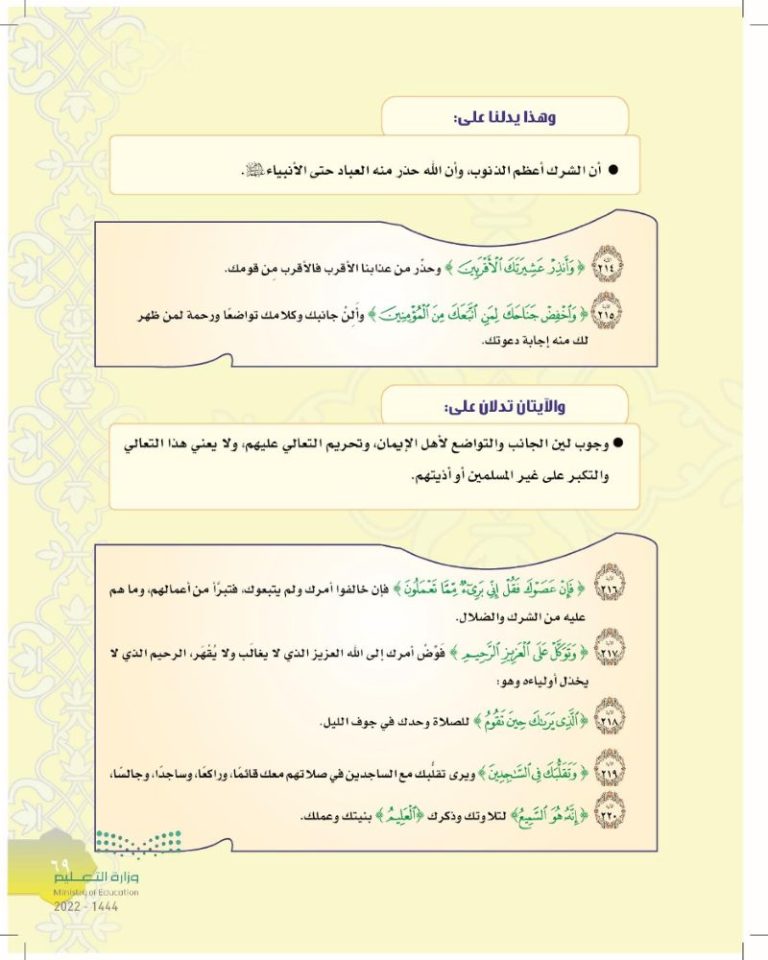 وهذا يدلنا على:
● أن الشرك أعظم الذنوب، وأن الله حذر منه العباد حتى الأنبياء ﷺ.
٢١٤ ﴿ وَأَنذِرْ عَشِيرَتَكَ ٱلْأَقْرَبِينَ ﴾ وحذّر من عذابنا الأقرب فالأقرب مِن قومك.
٢١٥ ﴿ وَٱخْفِضْ جَنَاحَكَ لِمَنِ ٱتَّبَعَكَ مِنَ ٱلْمُؤْمِنِينَ ﴾ وأَلِنْ جانبك وكلامك تواضعًا ورحمة لمن ظهر
لك منه إجابة دعوتك.
والآيتان تدلان على:
● وجوب لين الجانب والتواضع لأهل الإيمان، وتحريم التعالي عليهم، ولا يعني هذا التعالي
والتكبر على غير المسلمين أو أذيتهم.
٢١٦ ﴿ فَإِنْ عَصَوْكَ فَقُلْ إِنِّي بَرِيٓءٌ مِّمَّا تَعْمَلُونَ ﴾ فإن خالفوا أمرك ولم يتبعوك، فتبرَّأ من أعمالهم، وما هم
عليه من الشرك والضلال.
٢١٧ ﴿ وَتَوَكَّلْ عَلَى ٱلْعَزِيزِ ٱلرَّحِيمِ ﴾ فَوِّضْ أمرك إلى الله العزيز الذي لا يغالَب ولا يُقْهَر، الرحيم الذي لا
يخذل أولياءه وهو:
٢١٨ ﴿ ٱلَّذِي يَرَىٰكَ حِينَ تَقُومُ ﴾ للصلاة وحدك في جوف الليل.
٢١٩ ﴿ وَتَقَلُّبَكَ فِي ٱلسَّٰجِدِينَ ﴾ ويرى تقلُّبك مع الساجدين في صلاتهم معك قائمًا، وراكعًا، وساجدًا، وجالسًا،
٢٢٠ ﴿ إِنَّهُۥ هُوَ ٱلسَّمِيعُ ﴾ لتلاوتك وذكرك ﴿ ٱلْعَلِيمُ ﴾ بنيتك وعملك.
٦٩
وزارة التعليم
Ministry of Education
2022 - 1444